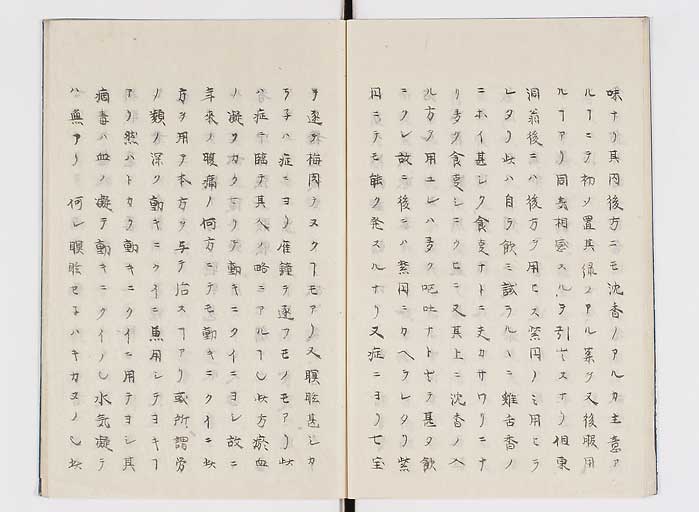 味ナリ其内後方ニモ沈香ノアルカ主意ナ
ルヿニテ初ノ置其緑ニアル薬ヲ又後服用
ルヿアリ同気相感スルヲ引セスナリ但東
洞翁後ニハ後方ヲ用ヒス紫円ノミ用ヒラ
レタリ此ハ自ラ飲ミ試ラルヽニ雞舌香ノ
ニホイ甚シク食事ナトニ夫カサワリニナ
リ多ク食事シニクヒニ又其上ニ沈香ノ入
ル方ヲ用ユレハ多ク吐ナトセテ甚タ飲
ニクレ故ニ後ニハ紫円ニカヘラレタリ紫
円ニテモ能ク発スルナリ又症ニヨリ七宝
ヲ逐テ梅肉テヌクヿモアリ又瞑眩甚シカ
ラ子ハ症ニヨリ雁鐘テ逐フモノモアリ此
ハ症ニ臨テ其人ノ略ニアルヿ也此方瘀血
ノ凝タカタヒラテ動キニクイニヨシ故ニ
年来ノ腹痛ノ何方ニテモ動キニクイニ此
方ヲ用テ本方ヲ与テ治スヿアリ或所謂労
ノ類ノ深ク動キニクイニ兼用シテヨキヿ
アリ然ハトカク動キニクイニ用テヨシ其
病毒ハ血ノ凝テ動キニクイノ也水気凝テ
ハ無アリ 何レ瞑眩セ子ハキカヌノ也此